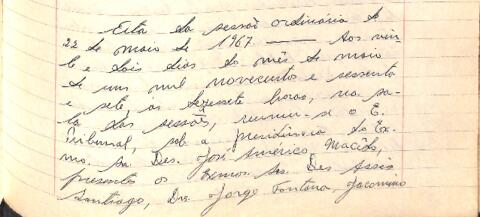 Ata da sessão ordinária de
22 de maio de 1967 — Aos vin-
te e dois dias do mês de maio
de um mil novecentos e sessenta
e sete, às dezessete horas, na sa-
la das sessões, reuniu-se o E.
Tribunal, sob a presidência do Ex-
mo. Sr. Des. José Américo Macêdo,
presentes os Exmos. Srs. Des Assis
Santiago, Drs. Jorge Fontana, Jacomino